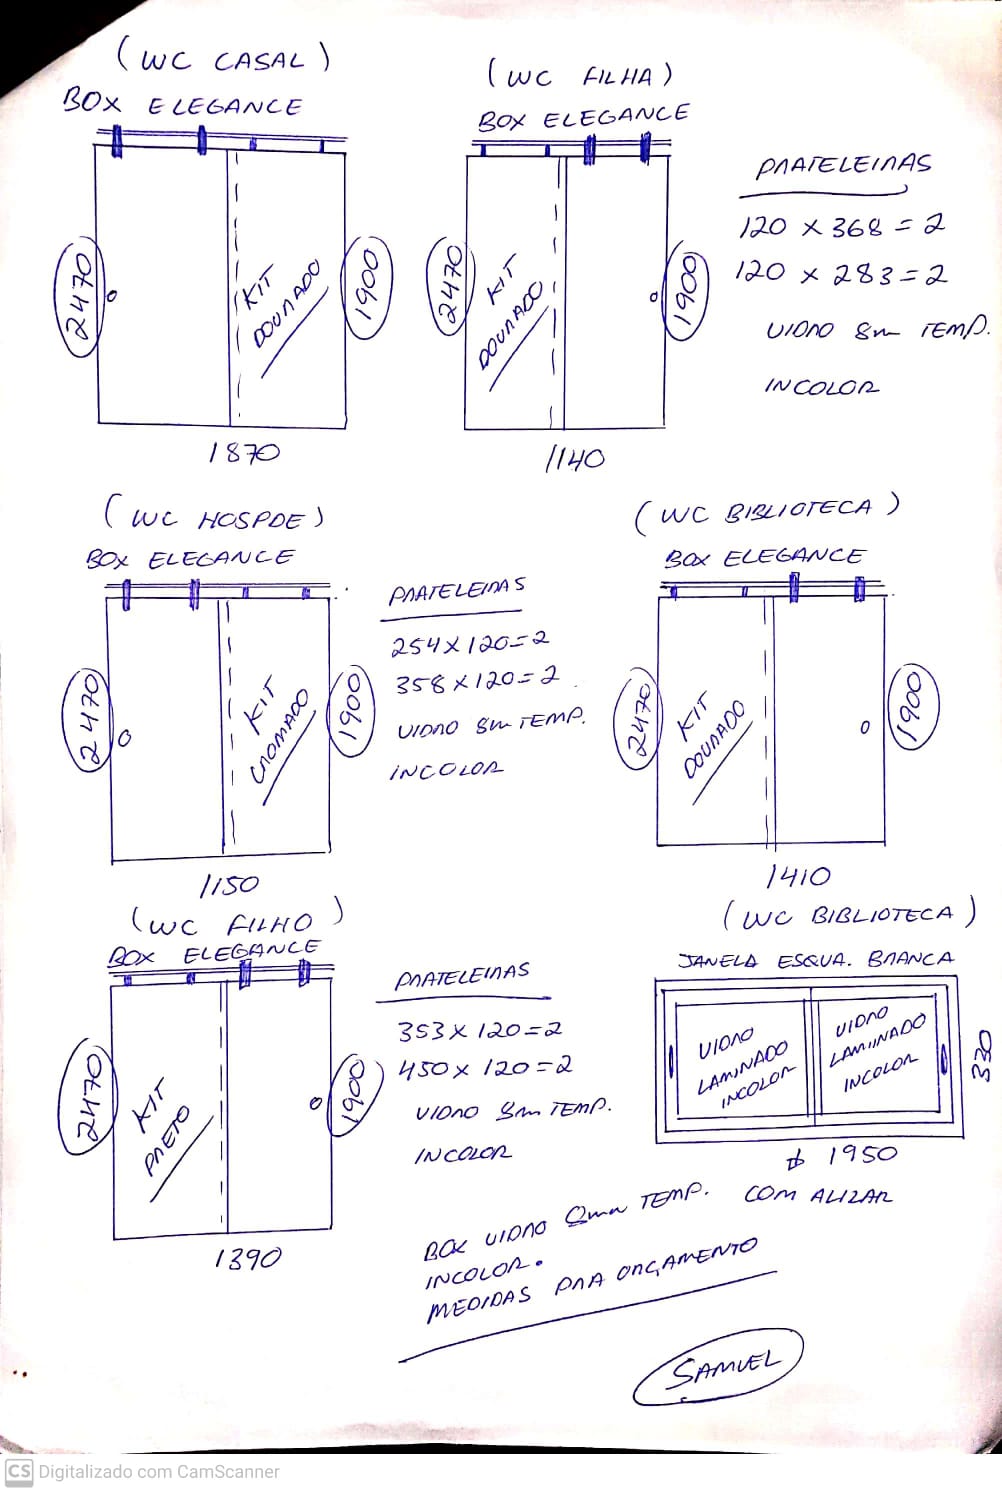 (WC CASAL)
BOX ELEGANCE
2470
KIT
DOURADO
1900
1870
(WC FILHA)
BOX ELEGANCE
2470
KIT
DOURADO
1900
1140
PRATELEIRAS
120 x 368 = 2
120 x 283 = 2
VIDRO 8m TEMP.
INCOLOR
(WC HOSPDE)
BOX ELEGANCE
2470
KIT
CROMADO
1900
1150
PRATELEIRAS
254 x 120 = 2
358 x 120 = 2
VIDRO 8m TEMP.
INCOLOR
(WC BIBLIOTECA)
BOX ELEGANCE
2470
KIT
DOURADO
1900
1410
(WC FILHO)
BOX ELEGANCE
2470
KIT
PRETO
1900
1390
PRATELEIRAS
353 x 120 = 2
450 x 120 = 2
VIDRO 8m TEMP.
INCOLOR
(WC BIBLIOTECA)
JANELA ESQUA. BRANCA
VIDRO
LAMINADO
INCOLOR
VIDRO
LAMINADO
INCOLOR
330
1950
COM ALIZAR
BOX VIDRO 8mm TEMP.
INCOLOR.
MEDIDAS PRA ORÇAMENTO
SAMUEL
CS Digitalizado com CamScanner